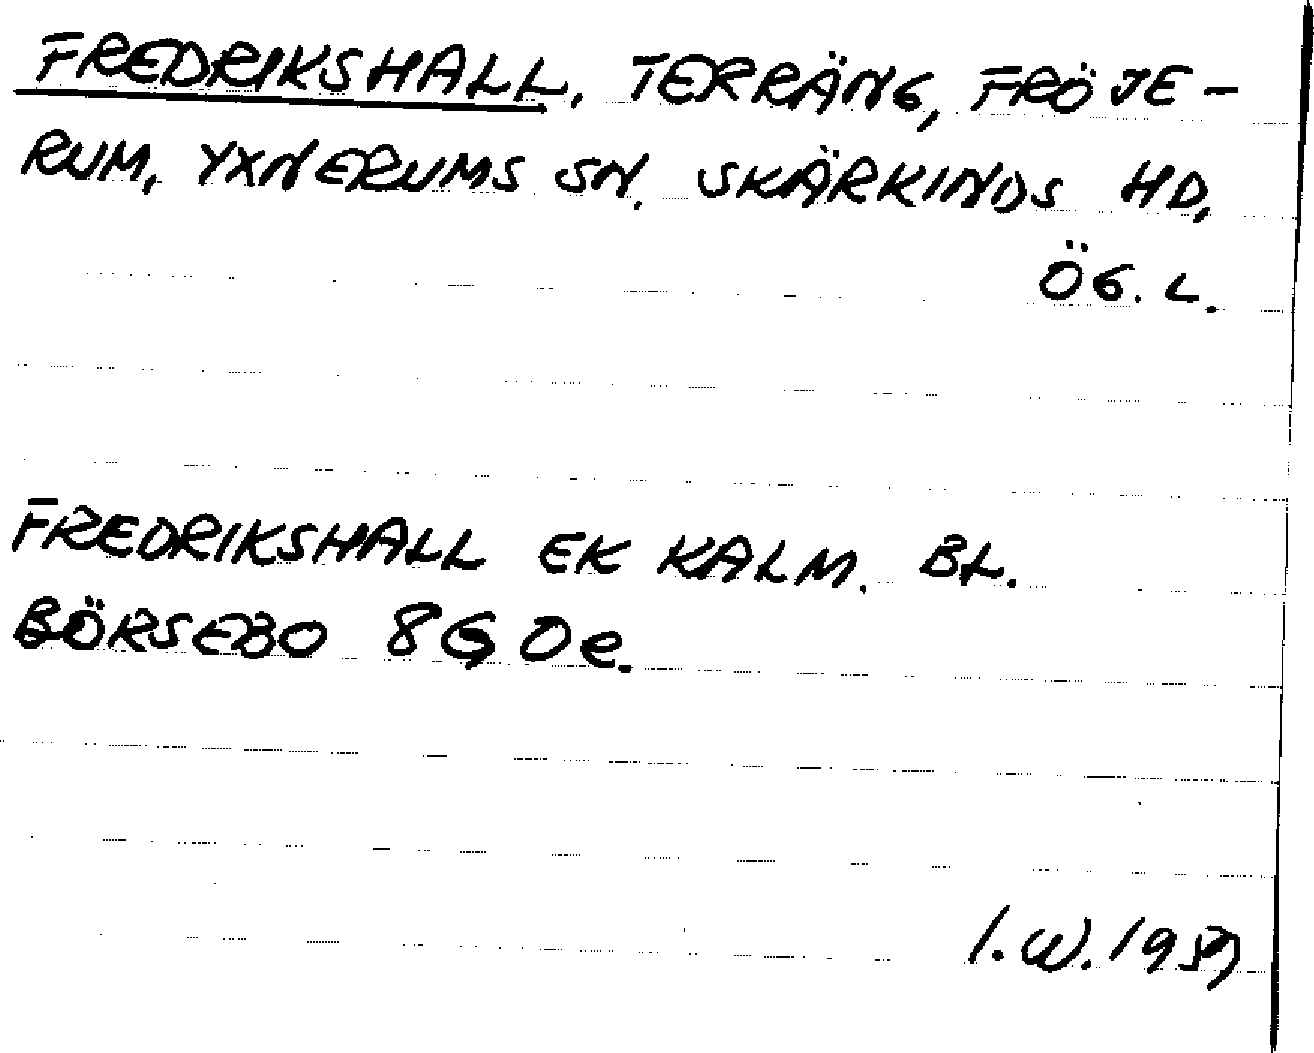 FREDRIKSHALL, TERRÄNG, FRÖJE-
RUM, YXNERUMS SN, SKÄRKINDS HD,
ÖG. L.
FREDRIKSHALL EK KALM. BL.
BÖRSEBO 8G 0e.
I.W. 1959